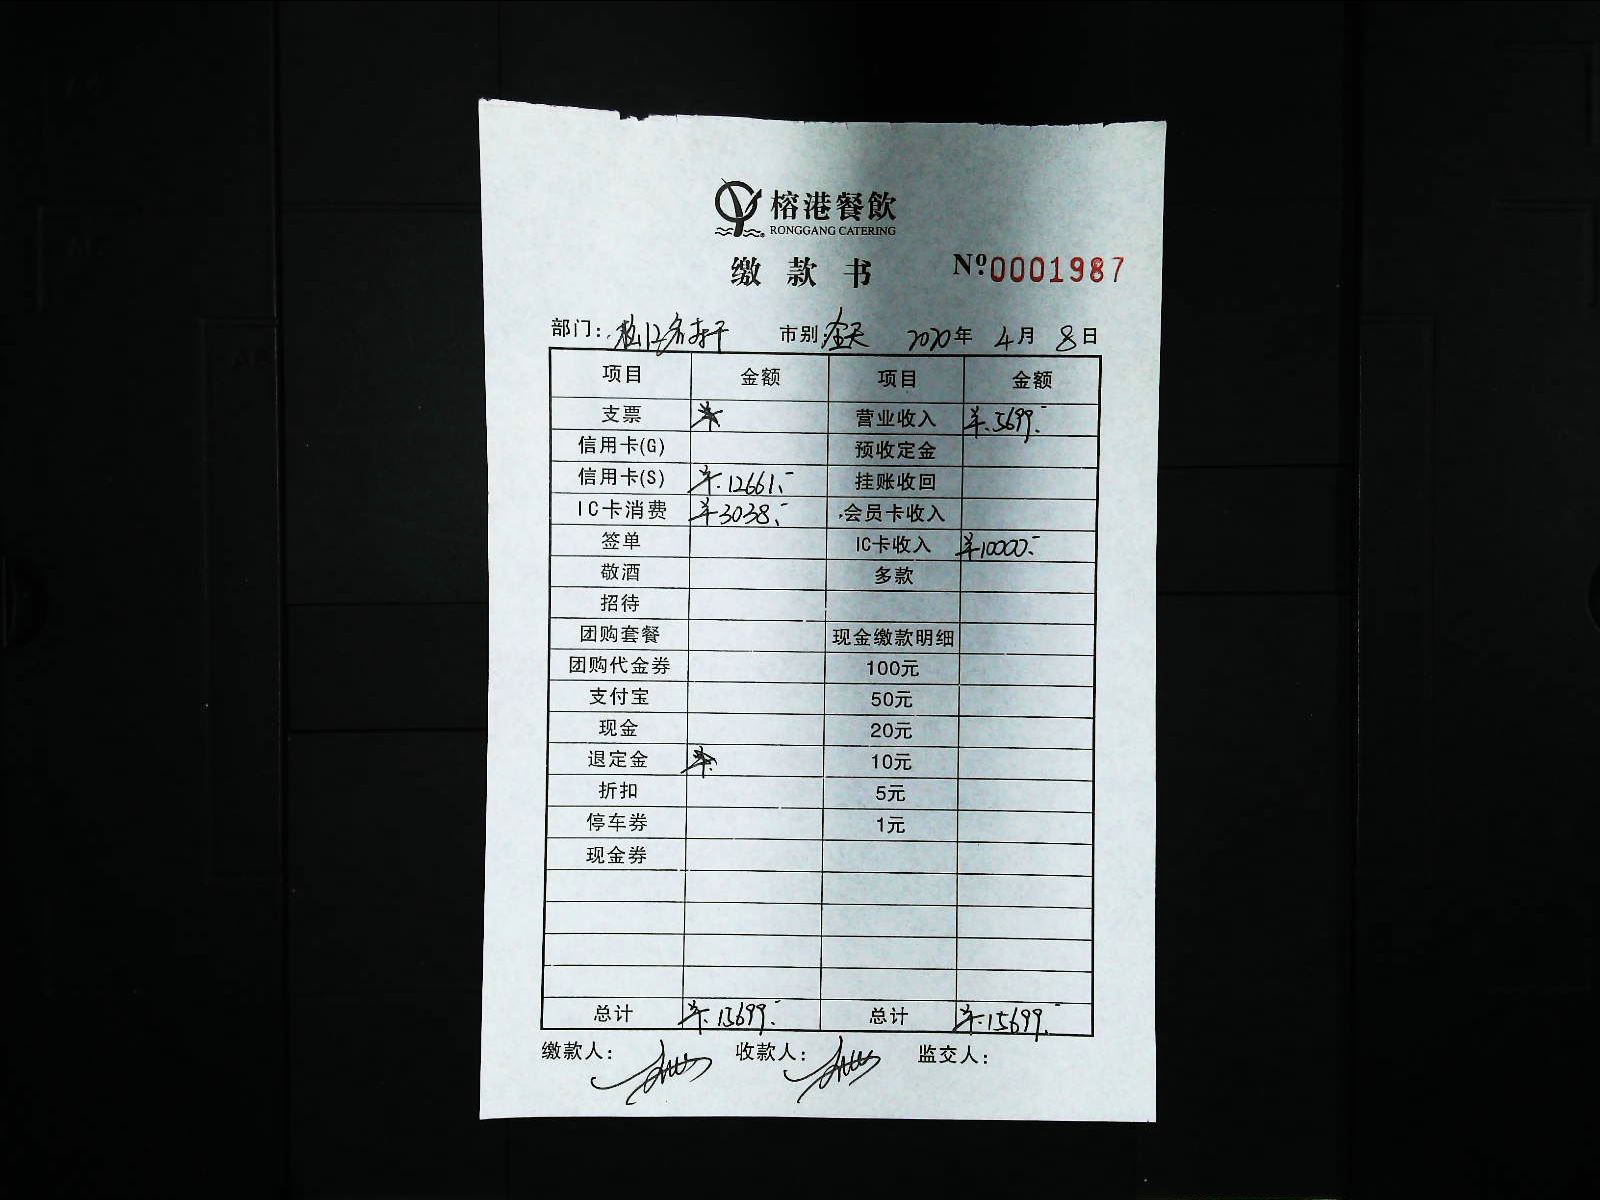 榕港餐飲
RONGGANG CATERING
缴款书 Nº0001987
部门: 市别:全天 2020年4月8日
项目 金额 项目 金额
支票 营业收入 ¥.5699.-
信用卡(G) 预收定金
信用卡(S) ¥.12661.- 挂账收回
IC卡消费 ¥3038.- 会员卡收入
签单 IC卡收入 ¥10000.-
敬酒 多款
招待
团购套餐 现金缴款明细
团购代金券 100元
支付宝 50元
现金 20元
退定金 10元
折扣 5元
停车券 1元
现金券
总计 ¥.15699.- 总计 ¥.15699.-
缴款人: 收款人: 监交人: